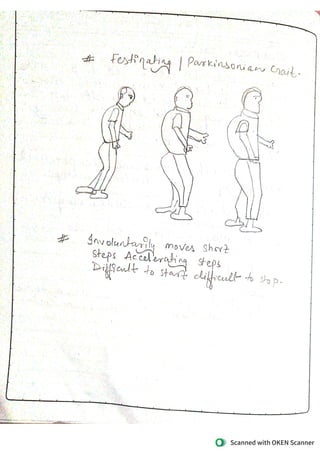 # Festinating / Parkinsonian Gait.
# Involuntarily moves short
steps Accelerating steps
Difficult to start difficult to stop.
Scanned with OKEN Scanner